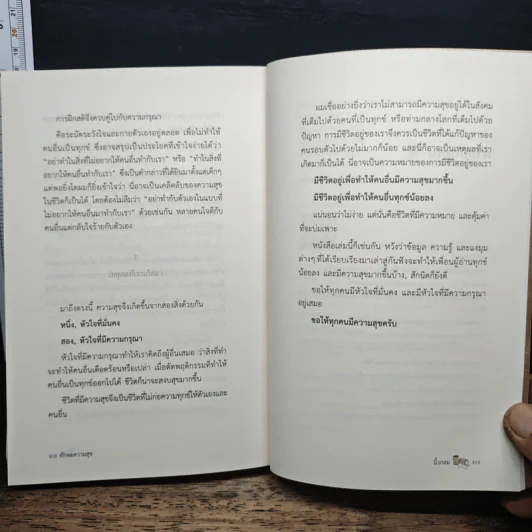 การฝึกสติจึงควบคู่ไปกับความกรุณา
คือระมัดระวังใจและกายตัวเองอยู่ตลอด เพื่อไม่ทำให้
คนอื่นเป็นทุกข์ ซึ่งอาจสรุปเป็นประโยคที่เข้าใจง่ายได้ว่า
"อย่าทำในสิ่งที่ไม่อยากให้คนอื่นทำกับเรา" หรือ "ทำในสิ่งที่
อยากให้คนอื่นทำกับเรา" ซึ่งเป็นคำกล่าวที่ได้ยินมาตั้งแต่เด็กๆ
แต่พอยิ่งโตผมก็ยิ่งเข้าใจว่า นี่อาจเป็นเคล็ดลับของความสุข
ในชีวิตก็เป็นได้ โดยต้องไม่ลืมว่า "อย่าทำกับตัวเองในแบบที่
ไม่อยากให้คนอื่นมาทำกับเรา" ด้วยเช่นกัน หลายคนใจดีกับ
คนอื่นแต่กลับใจร้ายกับตัวเอง
7
เหตุผลที่เราเกิดมา
มาถึงตรงนี้ ความสุขจึงเกิดขึ้นจากสองสิ่งด้วยกัน
หนึ่ง, หัวใจที่มั่นคง
สอง, หัวใจที่มีความกรุณา
หัวใจที่มีความกรุณาทำให้เราคิดถึงผู้อื่นเสมอ ว่าสิ่งที่ทำ
จะทำให้คนอื่นเดือดร้อนหรือเปล่า เมื่อตัดพฤติกรรมที่ทำให้
คนอื่นเป็นทุกข์ออกไปได้ ชีวิตก็น่าจะสงบสุขมากขึ้น
ชีวิตที่มีความสุขจึงเป็นชีวิตที่ไม่ก่อความทุกข์ให้ตัวเองและ
คนอื่น
ทักษะความสุข
ผมเชื่ออย่างยิ่งว่าเราไม่สามารถมีความสุขอยู่ได้ในสังคม
ที่เต็มไปด้วยคนที่เป็นทุกข์ หรือท่ามกลางโลกที่เต็มไปด้วย
ปัญหา การมีชีวิตอยู่ของเราจึงควรเป็นชีวิตที่ได้แก้ปัญหาของ
คนรอบตัวไปด้วยไม่มากก็น้อย และนี่ก็อาจเป็นเหตุผลที่เรา
เกิดมาก็เป็นได้ นี่อาจเป็นความหมายของการมีชีวิตอยู่ของเรา
มีชีวิตอยู่เพื่อทำให้คนอื่นมีความสุขมากขึ้น
มีชีวิตอยู่เพื่อทำให้คนอื่นทุกข์น้อยลง
แน่นอนว่าไม่ง่าย แต่นั่นคือชีวิตที่มีความหมาย และคุ้มค่า
ที่จะบ่มเพาะ
หนังสือเล่มนี้ก็เช่นกัน หวังว่าข้อมูล ความรู้ และแง่มุม
ต่างๆ ที่ได้เรียบเรียงมาเล่าสู่กันฟังจะทำให้เพื่อนผู้อ่านทุกข์
น้อยลง และมีความสุขมากขึ้นบ้าง, สักนิดก็ยังดี
ขอให้ทุกคนมีหัวใจที่มั่นคง และมีหัวใจที่มีความกรุณา
อยู่เสมอ
ขอให้ทุกคนมีความสุขครับ
นิ้วกลม